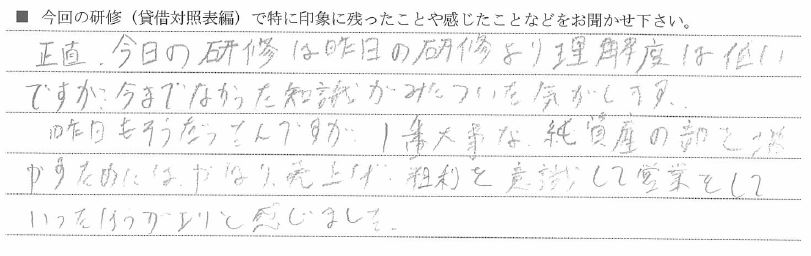 ■ 今回の研修（貸借対照表編）で特に印象に残ったことや感じたことなどをお聞かせ下さい。
正直、今日の研修は昨日の研修より理解度は低い
ですが、今までなかった知識がみについた気がします。
昨日もそうだったんですが、1番大事な、純資産の部を増
やすためには、やはり、売上げ、粗利を意識して営業をして
いったほうがよりと感じました。